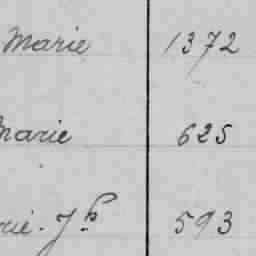 Marie 1372
Marie 625
rie. Jh 593